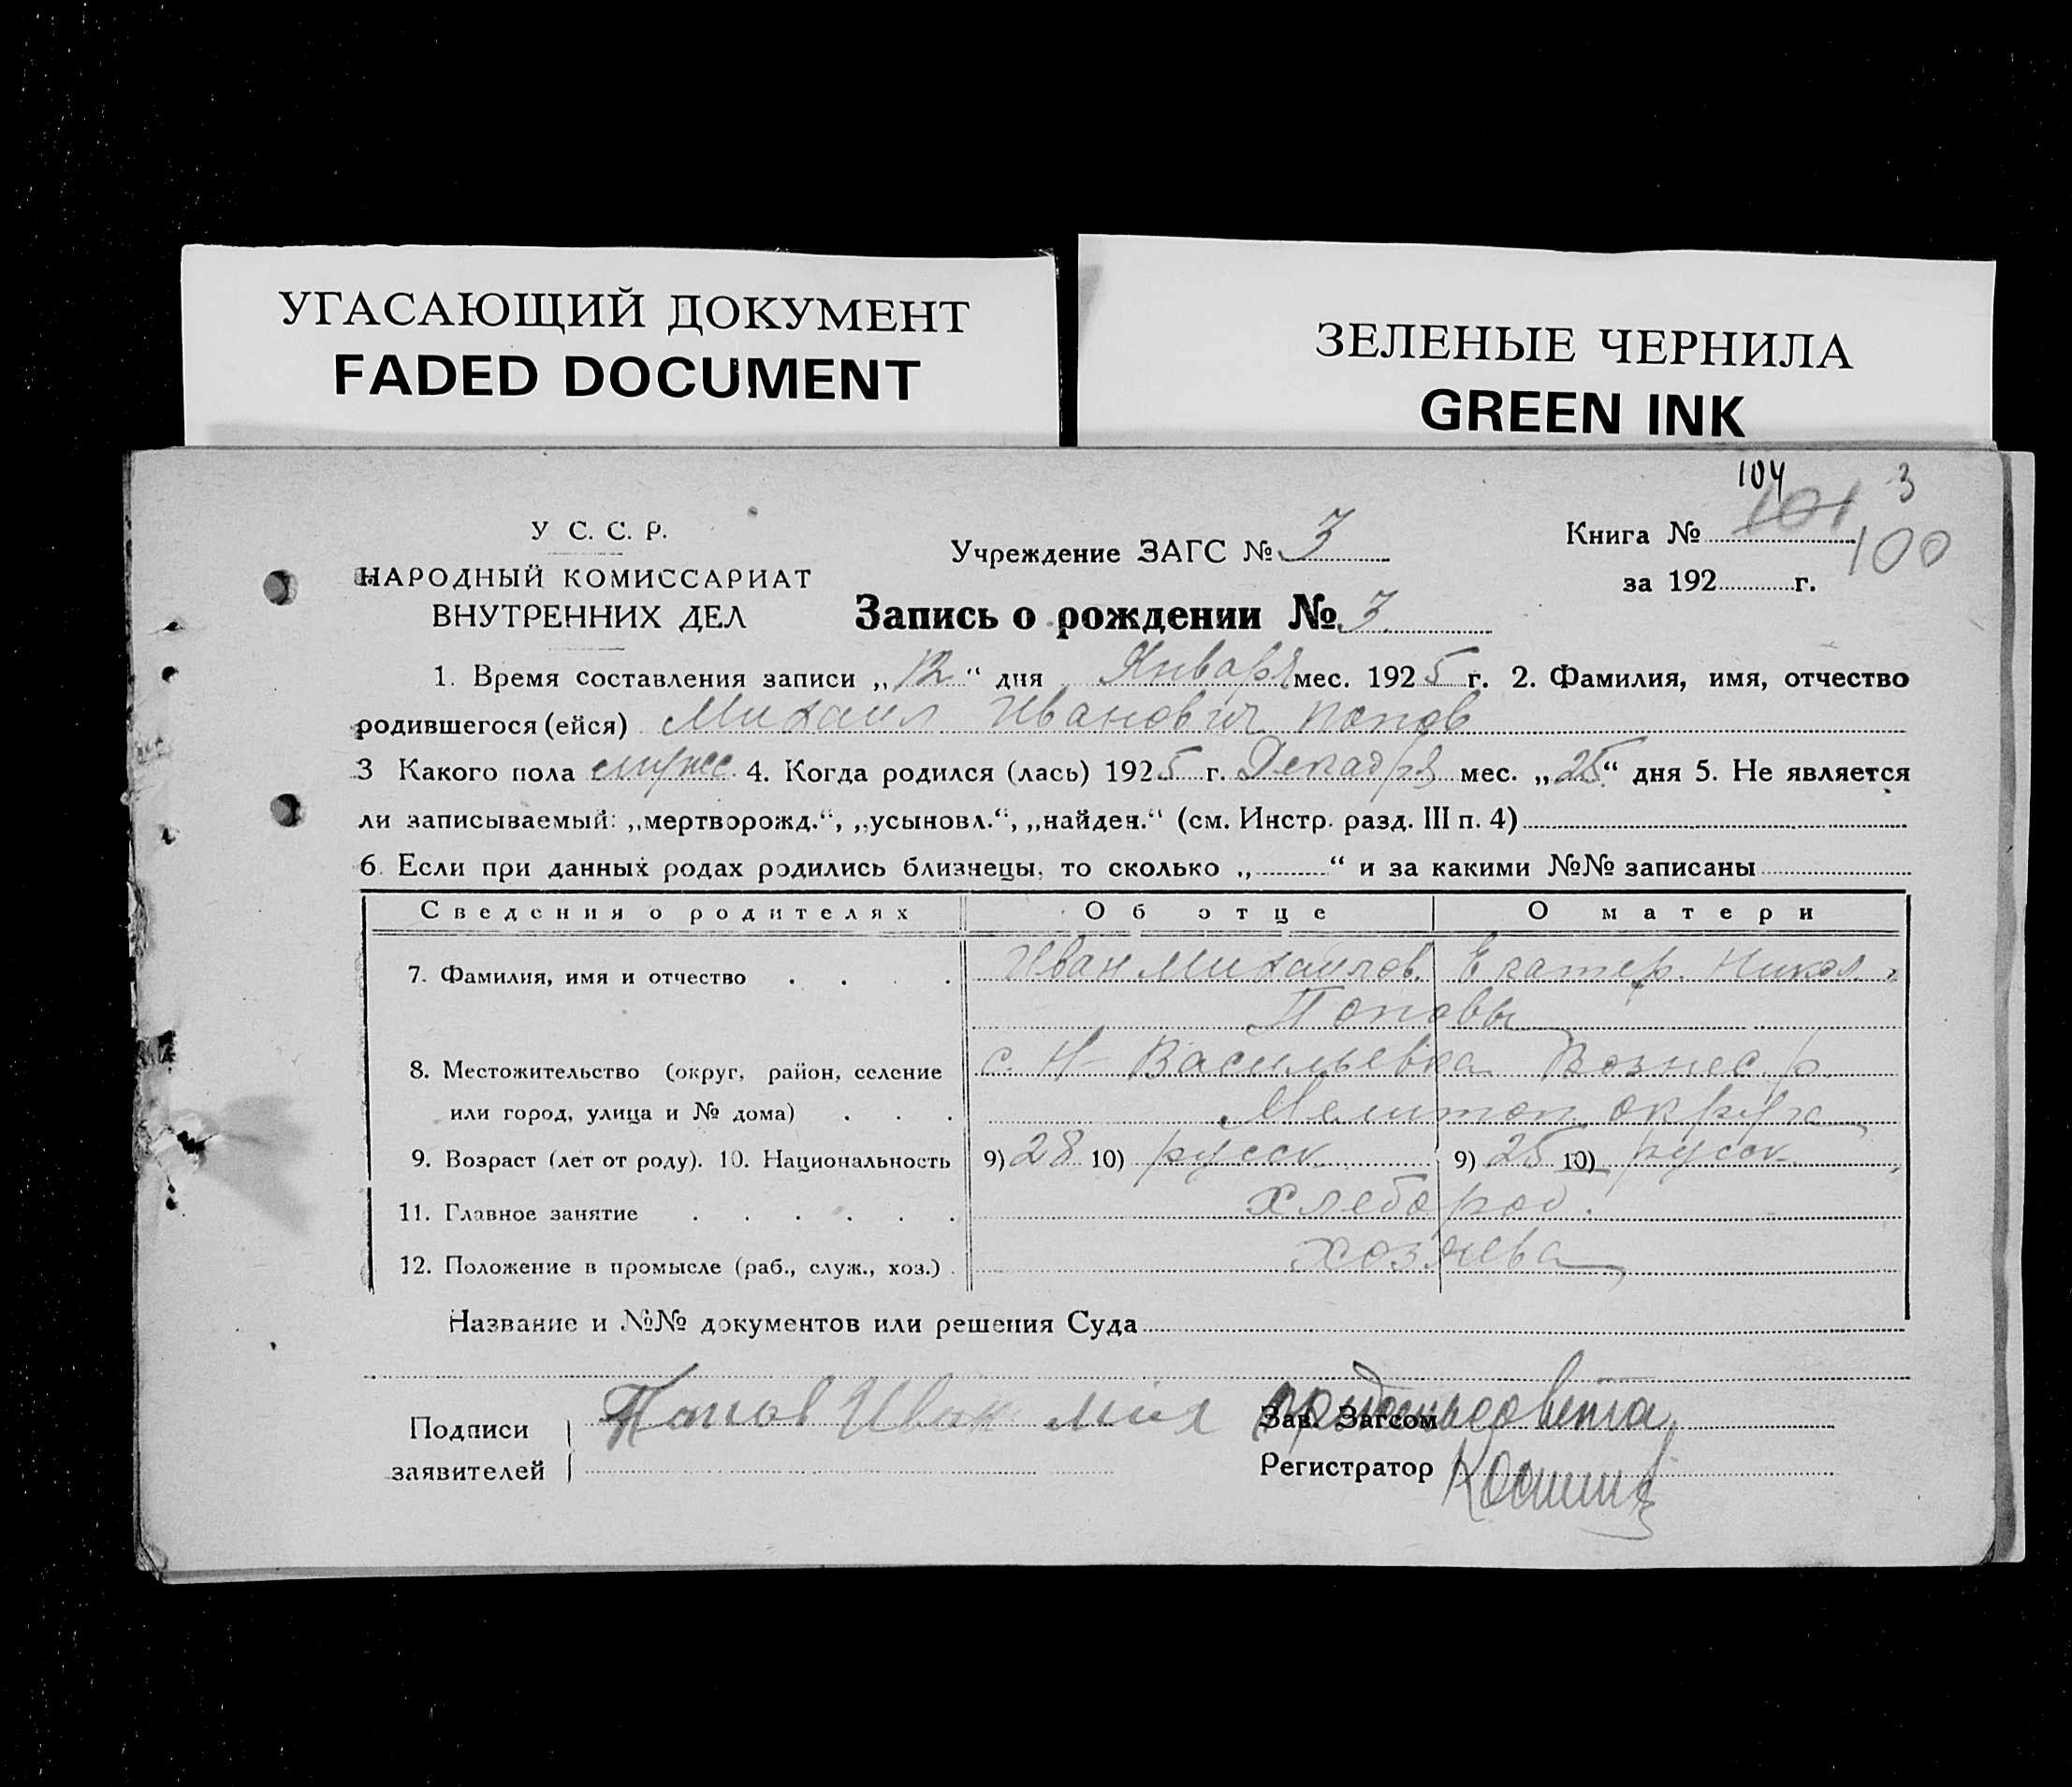 УГАСАЮЩИЙ ДОКУМЕНТ
FADED DOCUMENT
ЗЕЛЕНЫЕ ЧЕРНИЛА
GREEN INK
104 3
У С. С. Р.
НАРОДНЫЙ КОМИССАРИАТ
ВНУТРЕННИХ ДЕЛ
Учреждение ЗАГС № 3
Книга № 101 100
за 192 г.
Запись о рождении № 3
1. Время составления записи „12“ дня Января мес. 1925 г. 2. Фамилия, имя, отчество
родившегося (ейся) Михаил Иванович Попов
3 Какого пола мужс. 4. Когда родился (лась) 1925 г. Декабря мес. „25“ дня 5. Не является
ли записываемый: „мертворожд.“, „усыновл.“, „найден.“ (см. Инстр. разд. III п. 4)
6. Если при данных родах родились близнецы, то сколько „ “ и за какими №№ записаны
Сведения о родителях Об отце О матери
7. Фамилия, имя и отчество . . . . Иван Михайлов. Екатер. Никол.
Поповы
8. Местожительство (округ, район, селение с. Н-Васильевка Вознес. р.
или город, улица и № дома) . . . Мелитоп. округа
9. Возраст (лет от роду). 10. Национальность 9) 28 10) русск 9) 25 10) русск
11. Главное занятие . . . . . . Хлебороб.
12. Положение в промысле (раб., служ., хоз.) . хозяева
Название и №№ документов или решения Суда
Подписи
заявителей
Попов Иван Мих
Зав. Загсом
Регистратор